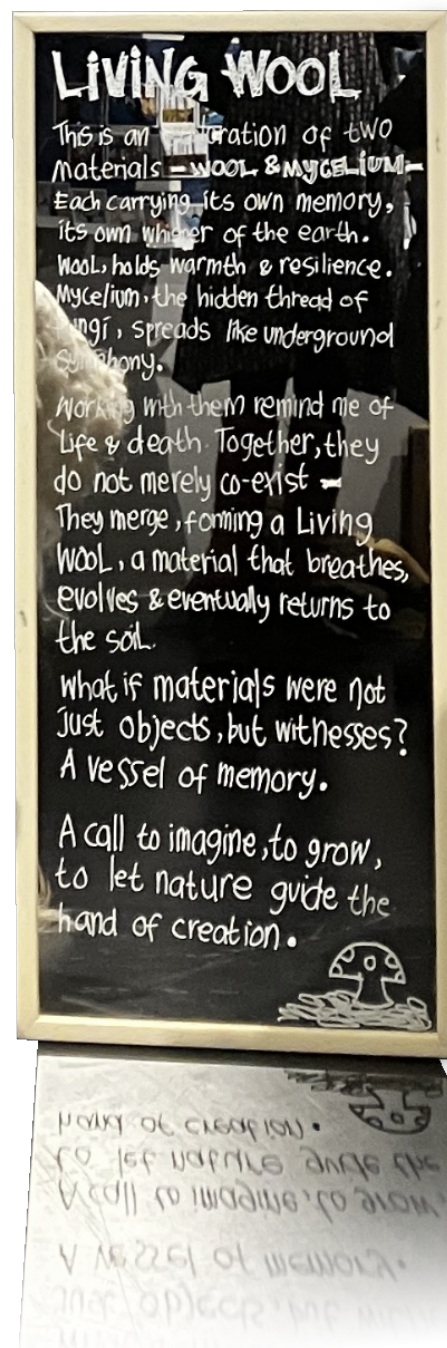 LIVING WOOL
This is an of two
materials - WOOL & MYCELIUM -
Each carrying its own memory,
its own whisper of the earth.
Wool, holds warmth & resilience.
Mycelium, the hidden thread of
fungi, spreads like underground
symphony.
Working with them remind me of
Life & death. Together, they
do not merely co-exist -
They merge, forming a Living
Wool, a material that breathes,
evolves & eventually returns to
the soil.
what if materials were not
just objects, but witnesses?
A vessel of memory.
A call to imagine, to grow,
to let nature guide the
hand of creation.